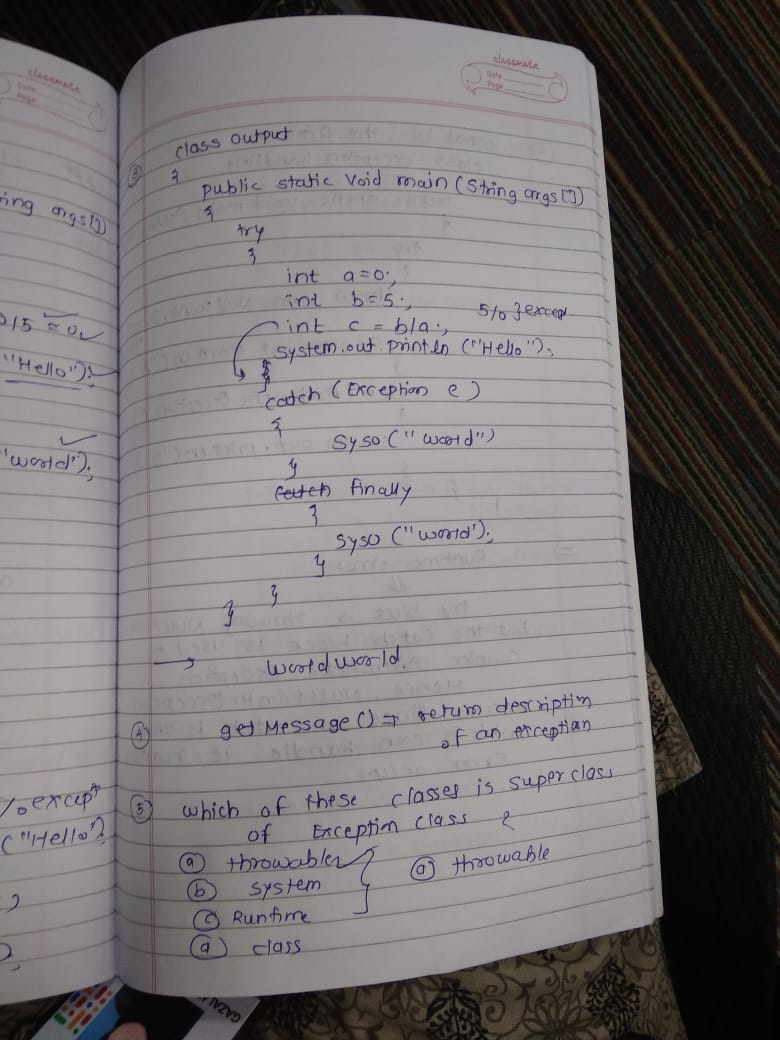 classmate
Date
Page
ing args[])
0/5 = 0
"Hello");
"world");
% except
("Hello")
classmate
Date
Page
③ class output
{
public static void main (String args[])
{
try
{
int a=0;
int b=5;
5/0 } except
int c = b/a;
System.out.println ("Hello");
}
catch (Exception e)
{
syso ("world")
}
catch finally
{
syso ("world');
}
}
}
→ world world.
④ get Message () ⇒ return description
of an exception
⑤ which of these classes is superclass
of Exception class ?
ⓐ throwable
ⓑ system
ⓒ Runtime
ⓓ class
ⓐ throwable
GAZAL